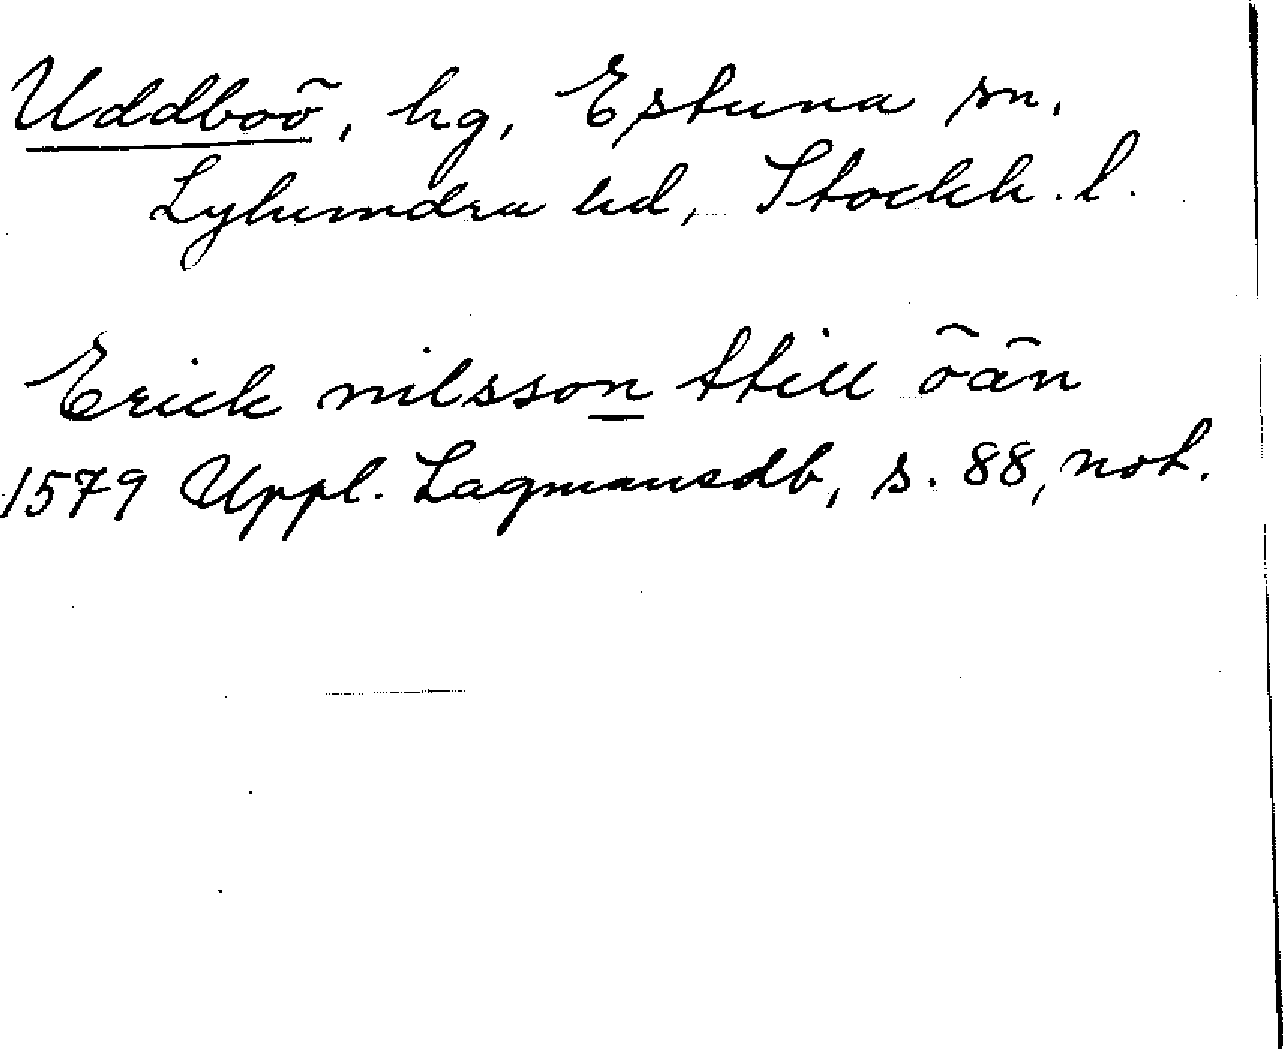 Uddboö, hg, Estuna sn.
Lyhundra hd, Stockh. l.
Erick nilsson ttill öän
1579 Uppl. Lagmansdb, s. 88, not.